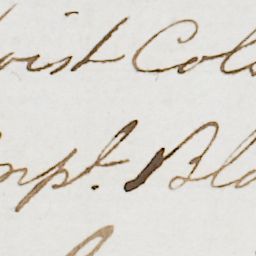 oist Col
mpt. Bla